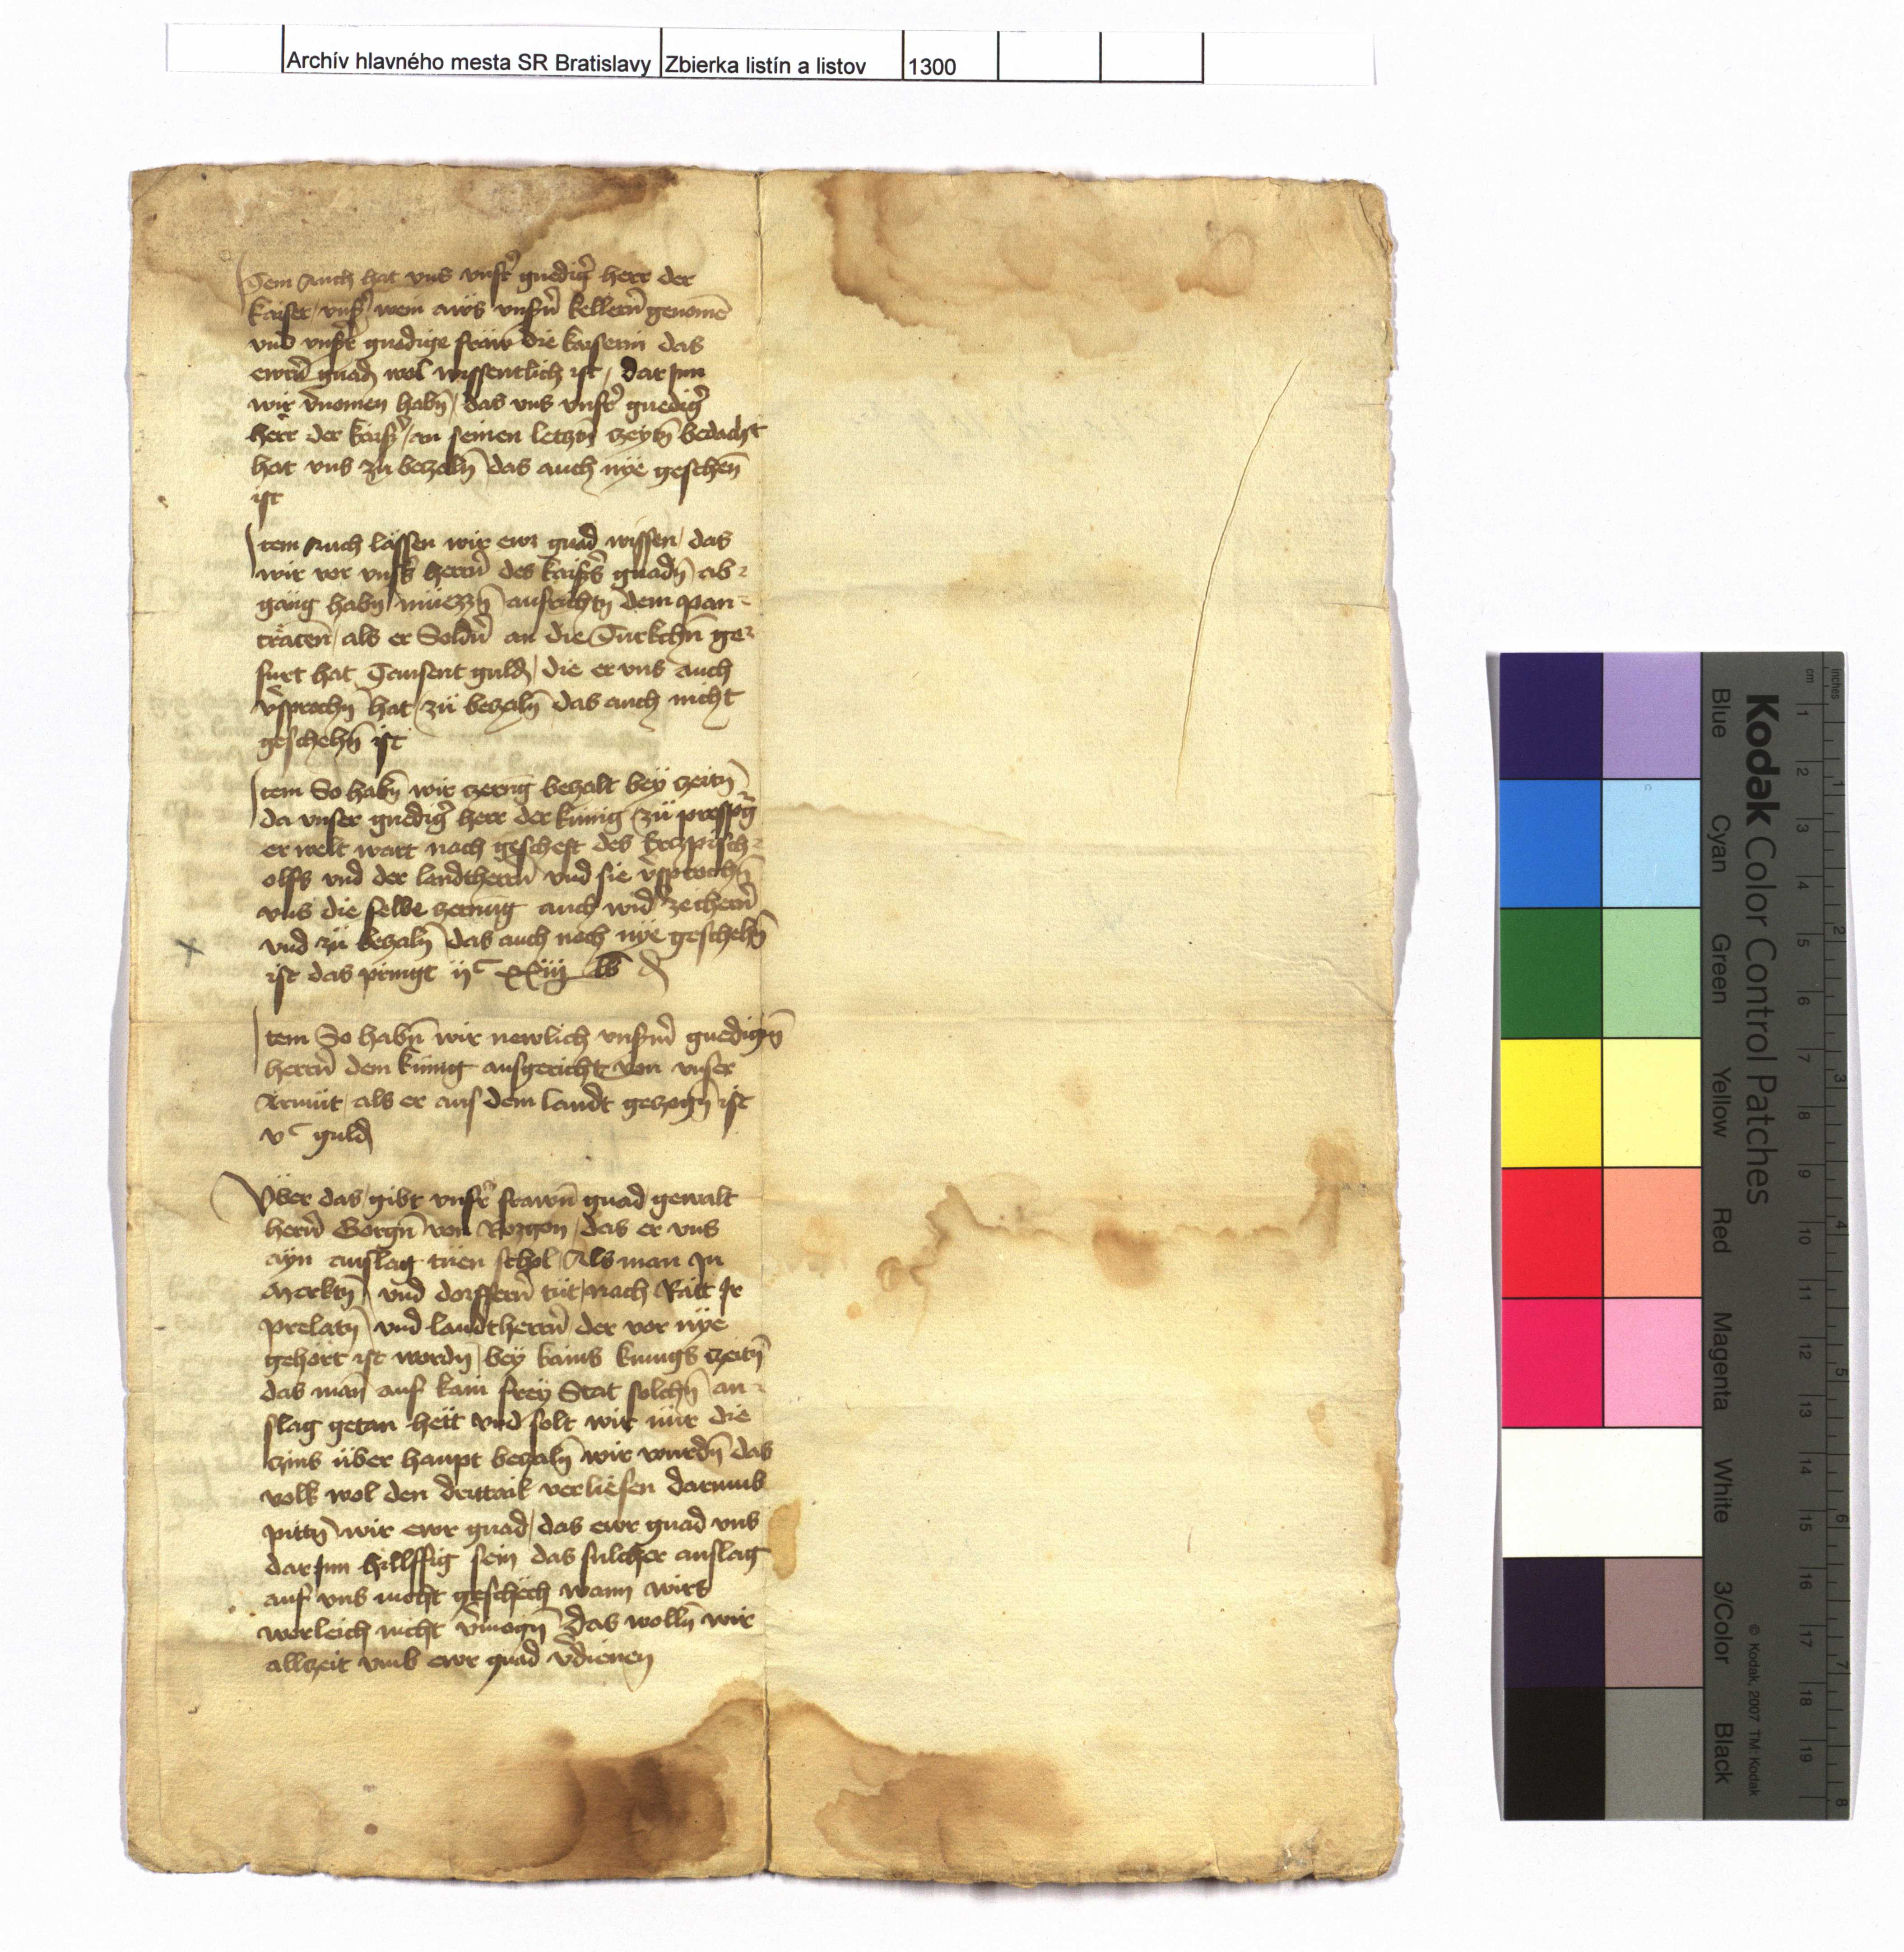 Archív hlavného mesta SR Bratislavy Zbierka listín a listov 1300
Item Auch hat vns vnsr̄ gnediḡ herr der
kaiser vnsr̄ wein aws vnsrn̄ kellern̄ genomē
vnd vnsr̄ gnedige fraw die kaiserin das
ewrn̄ gnadn̄ wol wissentlich ist / dar jnn
wir v̄nomen habn̄ / das vns vnsr̄ gnediḡ
herr der kaisr̄ / an seinen letztn̄ czeytn̄ bedacht
hat vns zu beczaln̄ das auch nye geschen̄
ist
Item Auch lassen wir ewr gnad wissen / das
wir vor vnsrs herrn̄ des kaisrs̄ gnadn̄ ab
gäng habn̄ müezzn̄ ausrichtn̄ dem pan
cräcen̄ / als er Soldn̄ an die Turkchn̄ ge
furt hat Tausent guldn̄ / die er vns auch
v̄sprochn̄ hat / zü beczaln̄ das auch nicht
geschehn̄ ist
Item So habn̄ wir czerūg beczalt bey czeitn̄
da vnser gnediḡ herr der künig zü prespḡ
erwelt wart nach gescheft des Erczpisch
olfs vnd der landtherrn̄ vnd sie v̄sprochn̄
vns die selbe czerūng auch wid̄ ze chern̄
vnd zü beczaln̄ das auch noch nye geschehn̄
ist das pringt ijᶜ xxiij lb d
Item So habn̄ wir newlich vnsrm̄ gnedign̄
herrn̄ dem künig ausgericht von vnser
Armüt / als er aus dem landt geczogn̄ ist
vᶜ guldn̄
Über das / gibt vnsr̄ frawn̄ gnad gewalt
hern̄ Görgn̄ von Rozgon / das er vns
ayn anslag tüen schol / Als man In
Merktn̄ vnd dorffern̄ tüt / nach Rätt Ir
prelatn̄ vnd landtherrn̄ der vor nye
gehört ist wordn̄ / bey kains kunigs czeitn̄
das man auf kain frey Stat solchn̄ an
slag getan hett vnd solt wir nür die
czins über haupt beczaln̄ wir wurdn̄ das
volk wol den drittail verliesen darumb
pittn̄ wir ewr gnad / das ewr gnad vns
dar jnn hillffig sein das sulcher anslag
auf vns nicht geschech wann wirs
werleich nicht v̄mogn̄ das wolln̄ wir
allczeit vmb ewr gnad v̄dienen
Kodak Color Control Patches
Blue Cyan Green Yellow Red Magenta White 3/Color Black
© Kodak, 2007 TM: Kodak
cm 1 2 3 4 5 6 7 8 9 10 11 12 13 14 15 16 17 18 19
inches 1 2 3 4 5 6 7 8